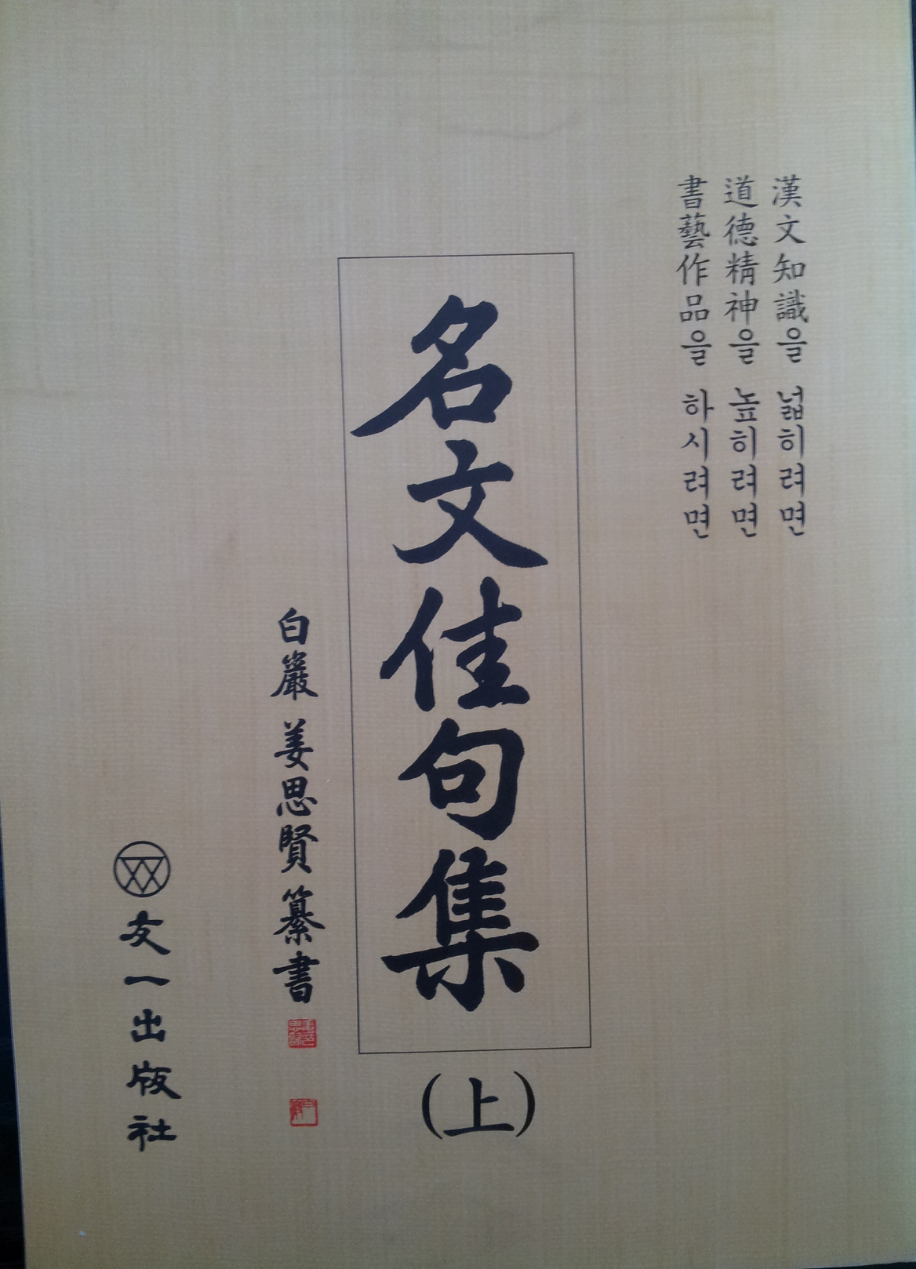 漢文知識을 넓히려면
道德精神을 높히려면
書藝作品을 하시려면
名文佳句集
(上)
白巖 姜思賢 纂書
友一出版社